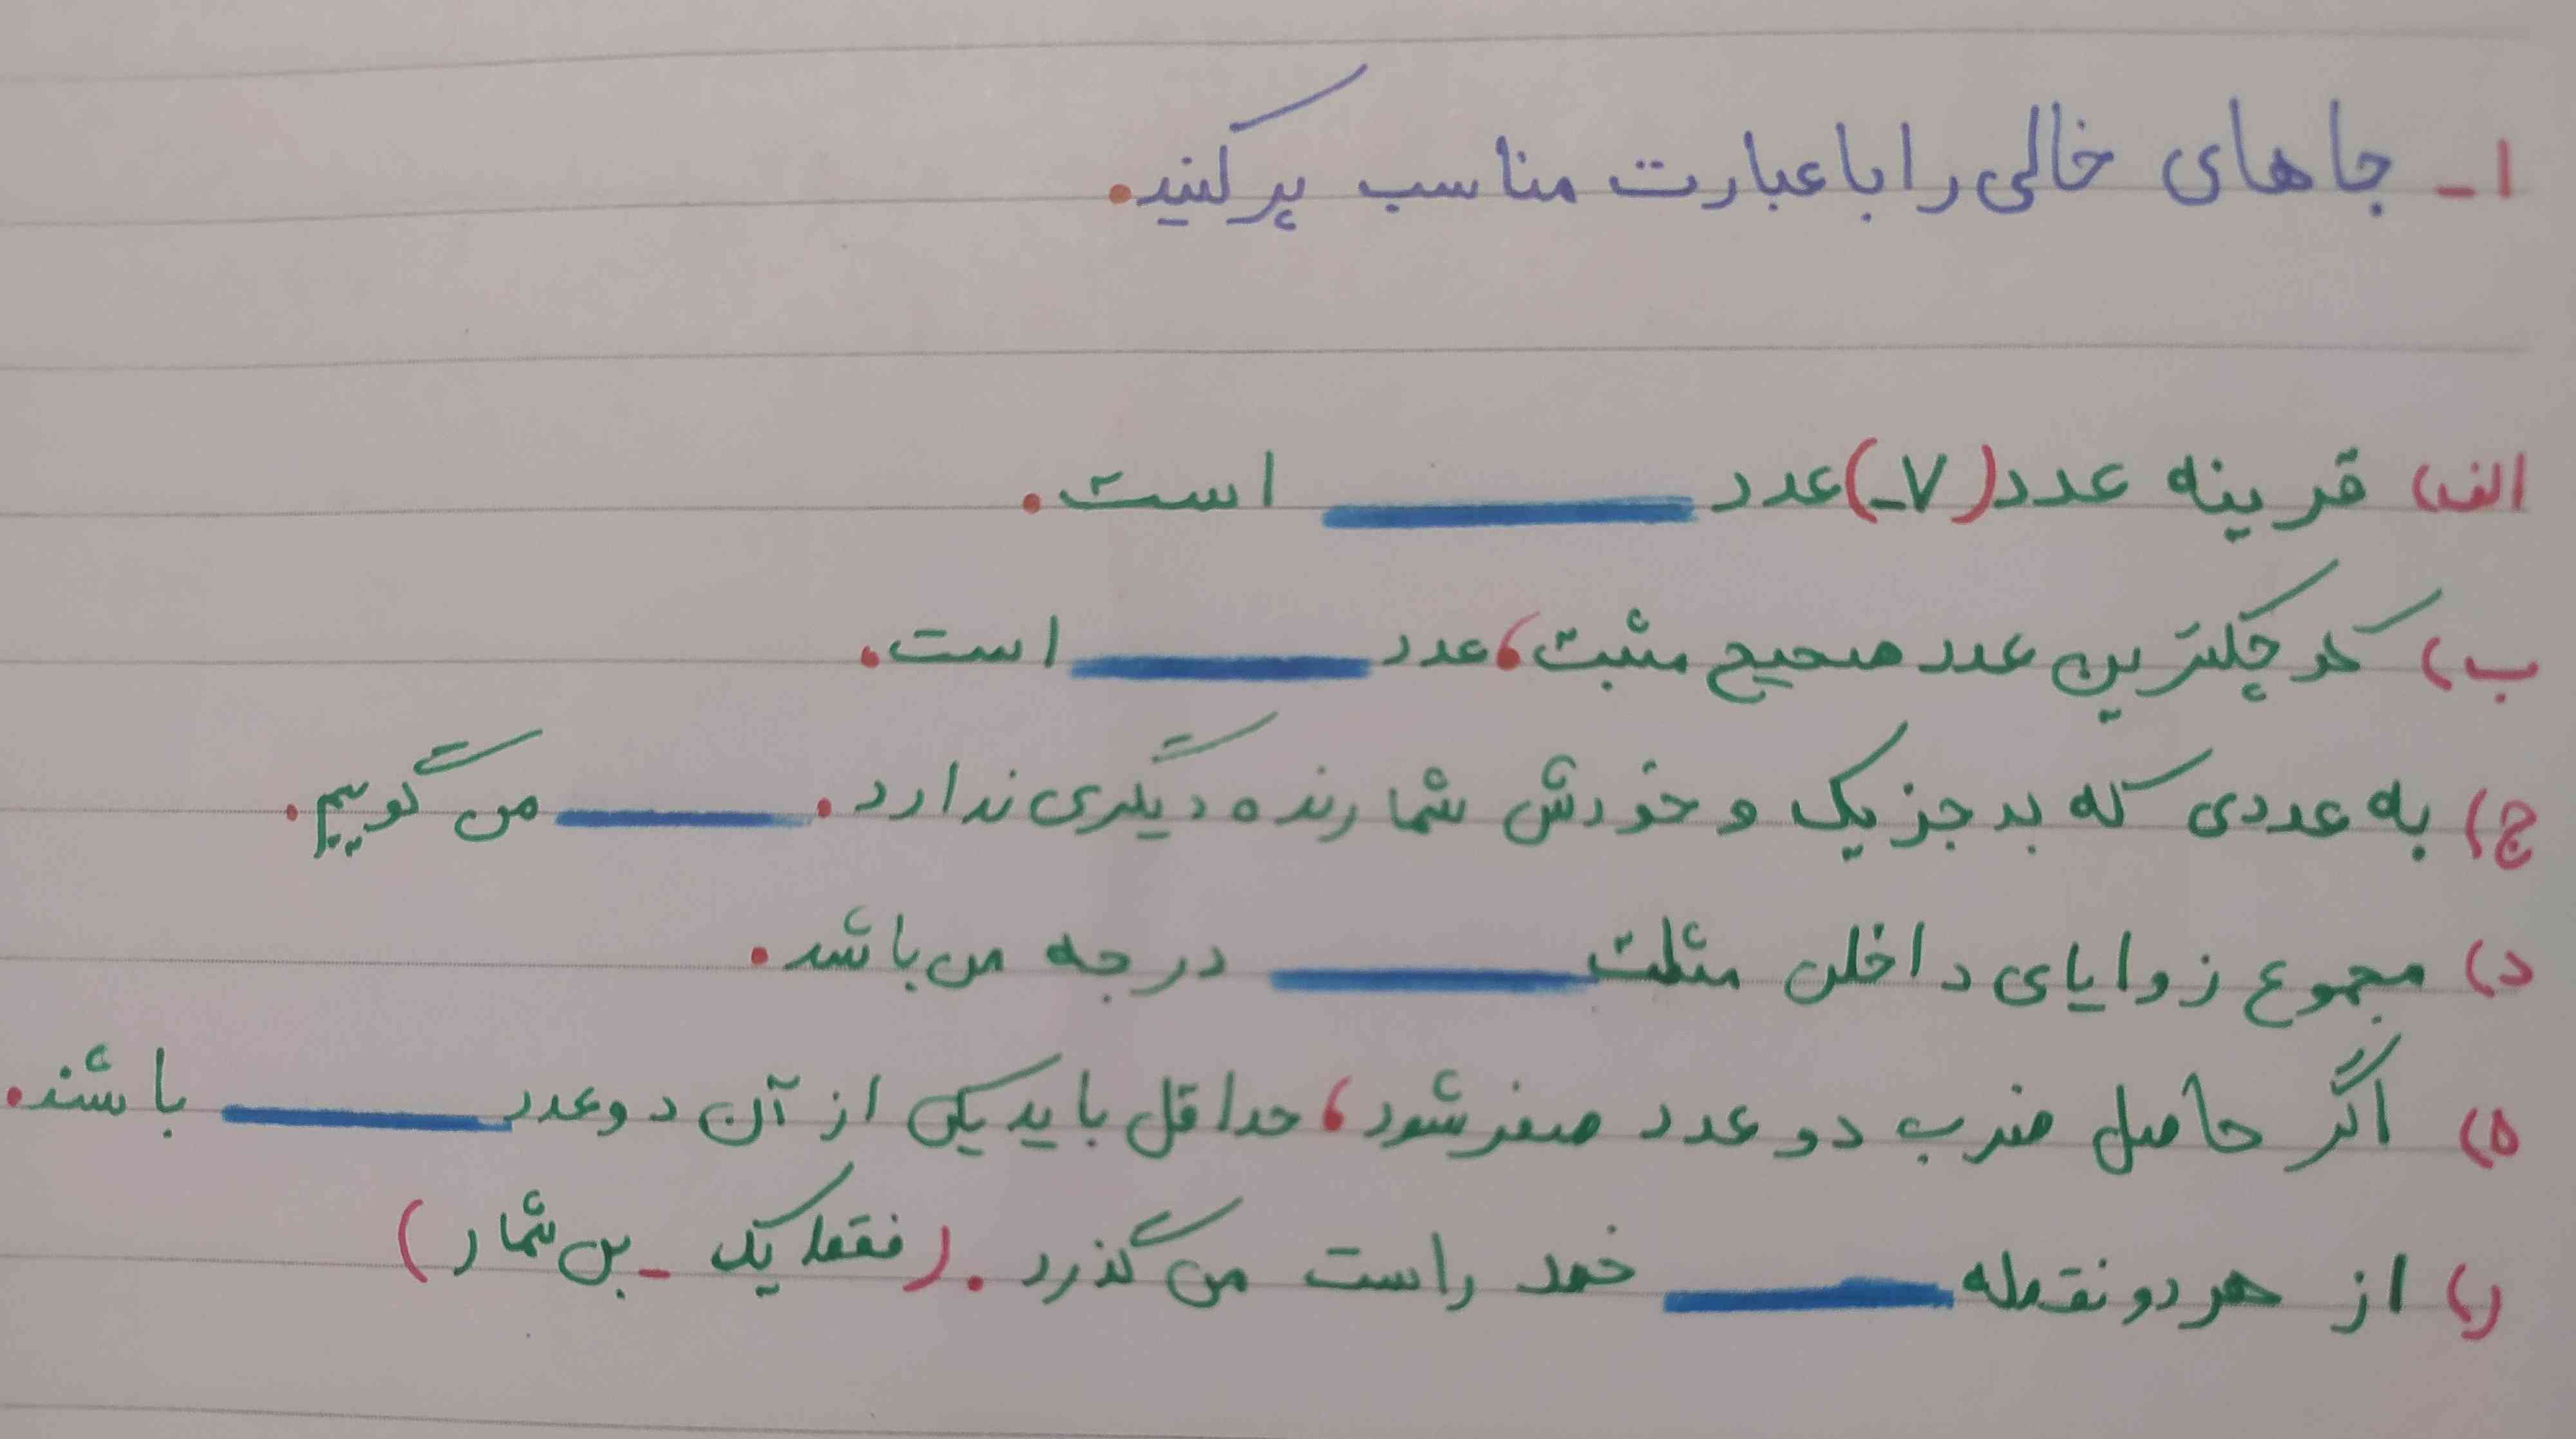 ۱- جاهای خالی را با عبارت مناسب پر کنید.
الف) قرینه عدد (۷-) عدد ______ است.
ب) کوچکترین عدد صحیح مثبت، عدد ______ است.
ج) به عددی که به جز یک و خودش شمارنده دیگری ندارد. ______ می گوییم.
د) مجموع زوایای داخلی مثلث ______ درجه می باشد.
ه) اگر حاصل ضرب دو عدد صفر شود، حداقل باید یکی از آن دو عدد ______ باشند.
ر) از هر دو نقطه ______ خط راست می گذرد. (فقط یک - بی شمار)